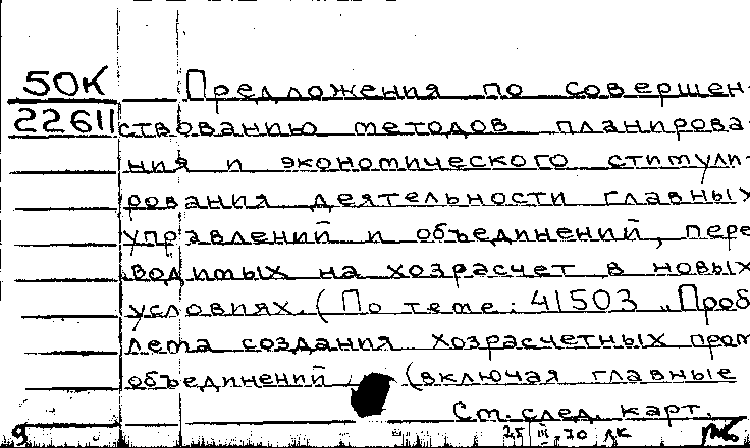 50К Предложения по совершен-
22611 ствованию методов планирова-
ния и экономического стимули-
рования деятельности главных
управлений и объединений, пере-
водимых на хозрасчет в новых
условиях. (По теме: 41503 „Проб-
лема создания хозрасчетных пром.
объединений (включая главные
См. след. карт.
9 25 III 70 ЛК